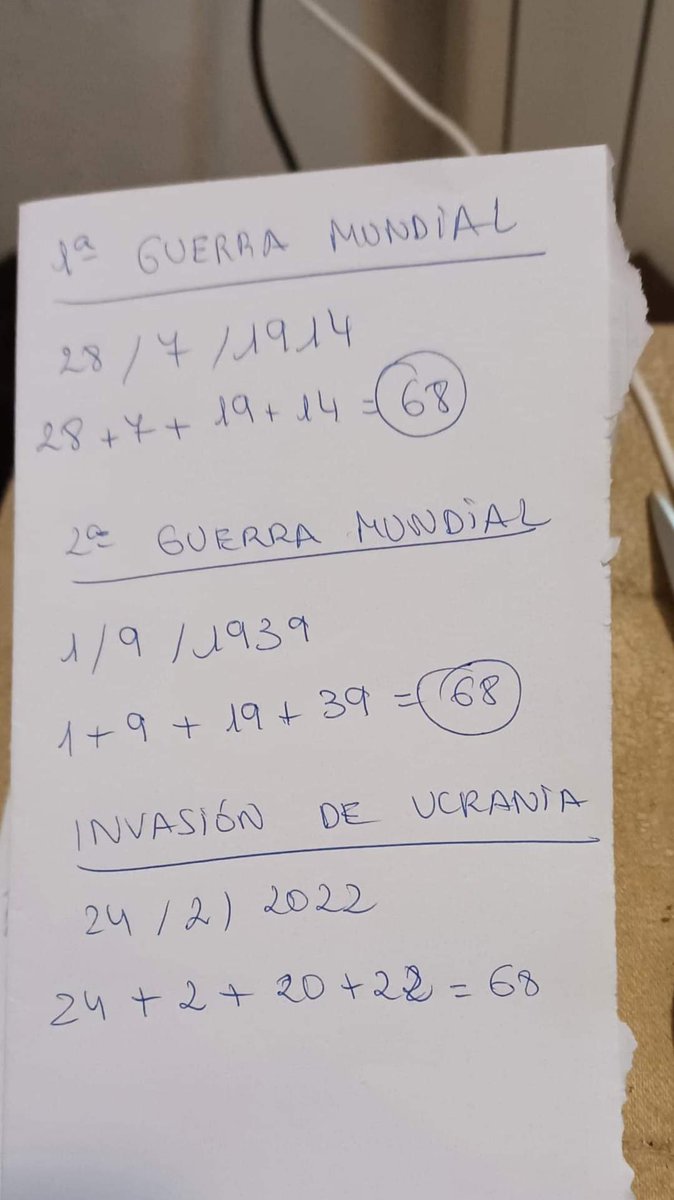 1ª GUERRA MUNDIAL
28 / 7 / 1914
28 + 7 + 19 + 14 = 68
2ª GUERRA MUNDIAL
1 / 9 / 1939
1 + 9 + 19 + 39 = 68
INVASIÓN DE UCRANIA
24 / 2 ) 2022
24 + 2 + 20 + 22 = 68